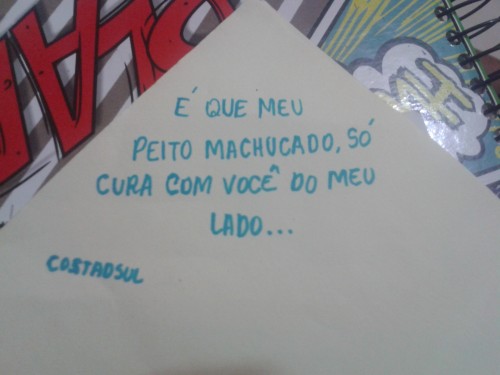 É QUE MEU
PEITO MACHUCADO, SÓ
CURA COM VOCÊ DO MEU
LADO...
COSTADSUL